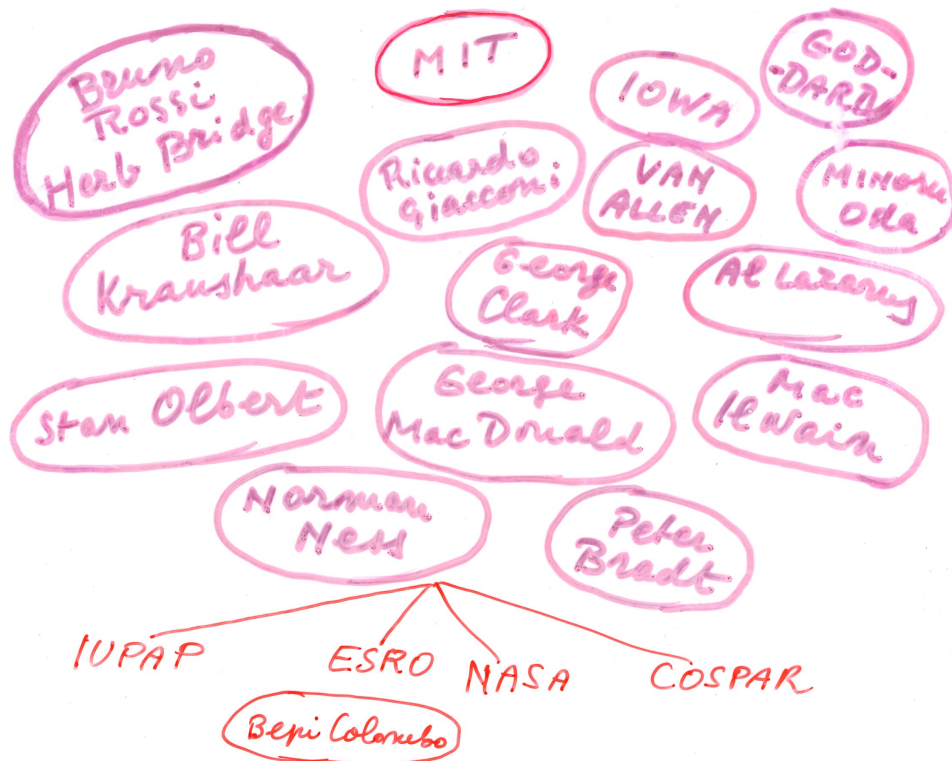 Bruno
Rossi
Herb Bridge
MIT
IOWA
GOD-
DARD
Riccardo
Giacconi
VAN
ALLEN
MINORU
Oda
Bill
Kraushaar
George
Clark
Al Lazarus
Stan Olbert
George
Mac Donald
Mac
Ilwain
Norman
Ness
Peter
Bradt
IUPAP
ESRO
NASA
COSPAR
Bepi Colombo